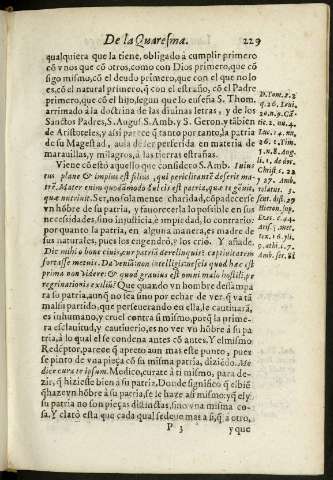 De la Quaresma. 229
qualquiera que la tiene, obligado à cumplir primero
cō vnos que cō otros, como con Dios primero, que cō
sigo mismo, cō el deudo primero, que con el que no lo
es, cō el natural primero, q̃ con el estraño, cō el Padre
primero, que cō el hijo, segun que lo enseña S. Thom.
arrimado à la doctrina de las diuinas letras, y de los
Sanctos Padres, S. Aug. S. Amb. y S. Geron. y tābien
de Aristoteles, y assi parece q̃ tanto por tanto, la patria
de su Magestad, auia de ser preferida en materia de
marauillas, y milagros, à las tierras estrañas.
Viene cō esto aquello que considero S. Amb. Iuius
tus plane & impius est filius, qui periclitantē deserit ma-
trē. Mater enim quodāmodo dulcis est patria, quæ te genuit,
quæ nutriuit. Ser, no solamente charidad, cōpadecerse
vn hōbre de su patria, y fauorecerla lo posible en sus
necessidades, sino injusticia, è impiedad, lo contrario:
por quanto la patria, en alguna manera, es madre de
sus naturales, pues los engendrò, y los criò. Y añade,
Dic mihi o bone ciuis, cur patriā derelinquis? captiuitatem
fortasse metuis. Da veniā, non intelligis quia quod hæc est
prima non videre: & quod grauius est omni malo hostili, pe
regrinationis exiliū? Que quando vn hombre desāmpa
ra su patria, aunq̃ no sea sino por echar de ver, q̃ va tā
mal su partido, que perseuerando en ella, le cautiuarā,
es inhumano, y cruel contra si mismo, porq̃ la prime-
ra esclauitud, y cautiuerio, es no ver vn hōbre à su pa
tria, à lo qual el se condena antes cō antes. Y el mismo
Redēptor, parece q̃ apreto aun mas este punto, pues
se pinto de vna pieça cō su misma patria, diziēdo. Me
dice cura te ipsum. Medico, curate à ti mismo, para de-
zir, q̃ hizieste bien à su patria. Donde significò q̃ el biē
q̃ haze vn hōbre à su patria, se le haze asi mismo: y q̃ el y
su patria no son pieças distinctas, sino vna misma co-
sa. Y claro esta que cada qual se deue mas à si, q̃ à otro,
P 3 y que
D. Tom. 2. 2